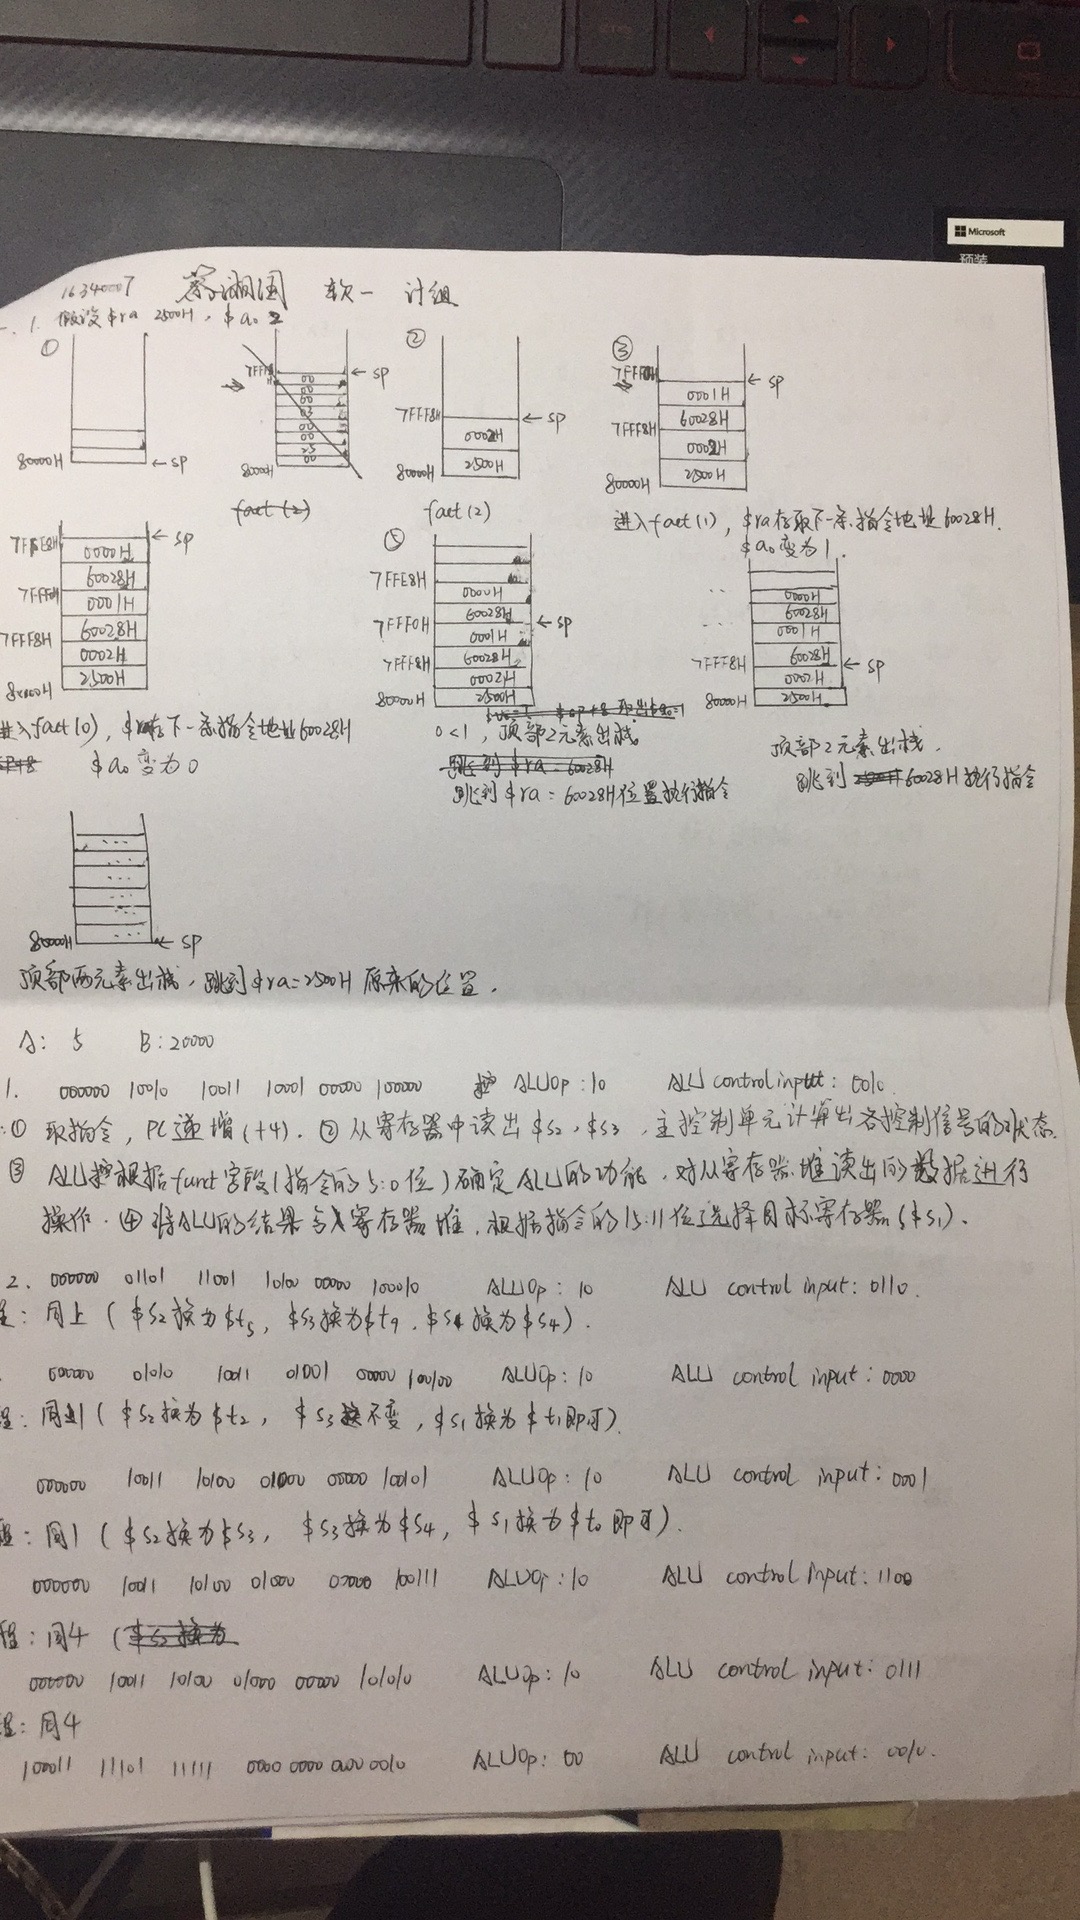 Microsoft
预装
16340007 蔡湘国 软一 计组
一. 1. 假设$ra 2500H, $a0 2
①
80000H
← SP
7FFF8H
← SP
80000H
fact (2)
②
7FFF8H
← SP
0002H
80000H
2500H
fact (2)
③
← SP
0001H
60028H
7FFF8H
0002H
2500H
80000H
进入fact(1), $ra存取下一条指令地址60028H.
$a0变为1.
7FFE8H
← SP
0000H
60028H
7FFF0H
0001H
7FFF8H
60028H
0002H
2500H
80000H
进入fact(0), $ra存下一条指令地址60028H
$a0 变为0
⑤
7FFE8H
0000H
60028H
7FFF0H
← SP
0001H
7FFF8H
60028H
0002H
80000H
2500H
0<1, 顶部2元素出栈
跳到 $ra = 60028H
跳到$ra = 60028H位置执行指令
0000H
60028H
0001H
60028H
7FFF8H
← SP
0002H
80000H
2500H
顶部2元素出栈,
跳到 60028H执行指令
80000H
← SP
顶部两元素出栈, 跳到$ra=2500H 原来的位置.
A: 5 B: 20000
1. 000000 10010 10011 10001 00000 100000 ALUOp: 10 ALU control input: 0010.
: ① 取指令, PC递增(+4). ② 从寄存器中读出$s2, $s3, 主控制单元计算出各控制信号的状态.
③ ALU控根据funct字段(指令的5:0位)确定ALU的功能, 对从寄存器堆读出的数据进行
操作. ④ 将ALU的结果写入寄存器堆, 根据指令的15:11位选择目标寄存器($s1).
2. 000000 01101 11001 10100 00000 100010 ALUOp: 10 ALU control input: 0110.
程: 同上 ($s2换为$t5, $s3换为$t9, $s1换为$s4).
000000 01010 10011 01001 00000 100100 ALUOp: 10 ALU control input: 0000
程: 同1 ($s2换为$t2, $s3不变, $s1换为$t1即可).
000000 10011 10100 01000 00000 100101 ALUOp: 10 ALU control input: 0001
程: 同1 ($s2换为$s3, $s3换为$s4, $s1换为$t0即可).
000000 10011 10100 01000 00000 100111 ALUOp: 10 ALU control input: 1100
程: 同4 ($s2换为
000000 10011 10100 01000 00000 101010 ALUOp: 10 ALU control input: 0111
程: 同4
100011 11101 11111 0000 0000 0000 0010 ALUOp: 00 ALU control input: 0010.